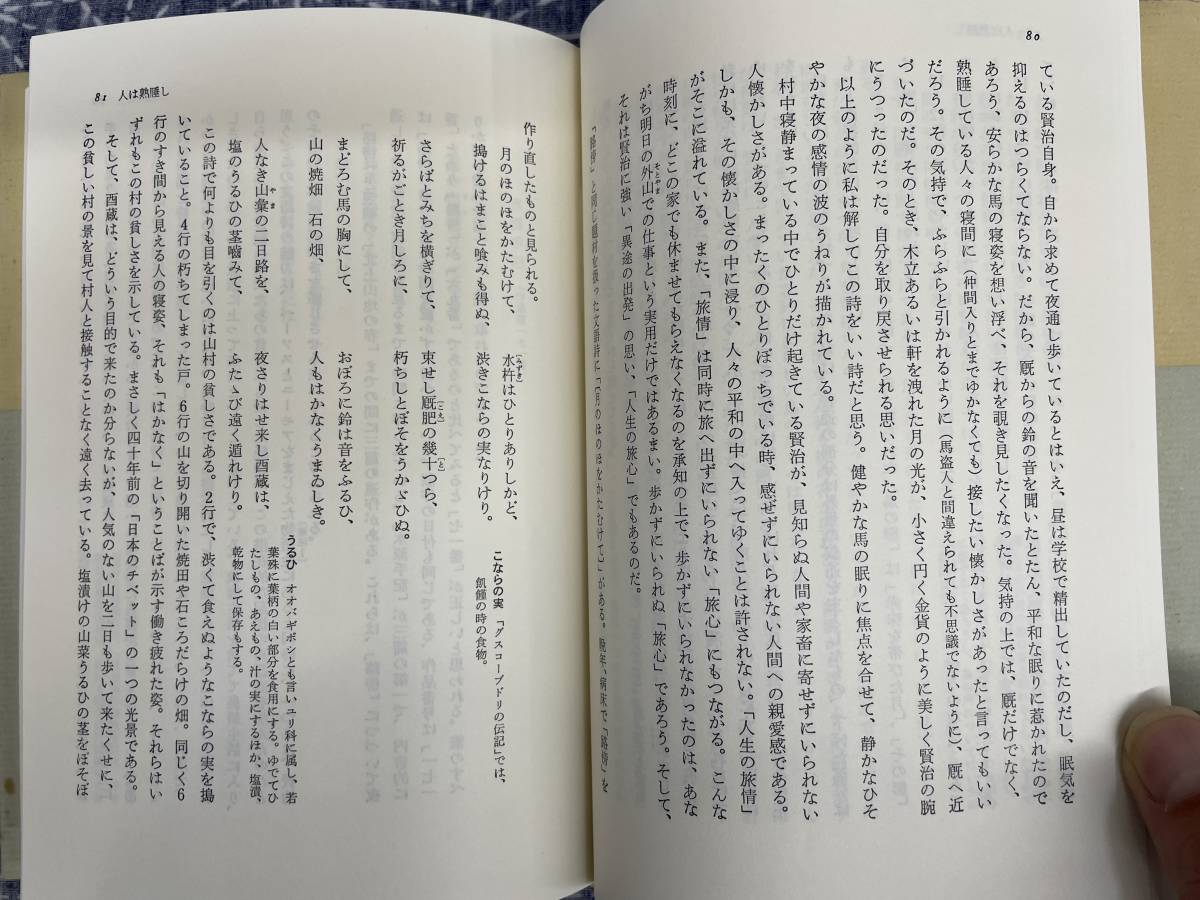 80
ている賢治自身。自から求めて夜通し歩いているとはいえ、昼は学校で精出していたのだし、眠気を
抑えるのはつらくてならない。だから、厩からの鈴の音を聞いたとたん、平和な眠りに惹かれたので
あろう、安らかな馬の寝姿を想い浮べ、それを覗き見したくなった。気持の上では、厩だけでなく、
熟睡している人々の寝間に（仲間入りとまでゆかなくても）接したい懐かしさがあったと言ってもいい
だろう。その気持で、ふらふらと引かれるように（馬盗人と間違えられても不思議でないように）、厩へ近
づいたのだ。そのとき、木立あるいは軒を洩れた月の光が、小さく円く金貨のように美しく賢治の腕
にうつったのだった。自分を取り戻させられる思いだった。
以上のように私は解してこの詩をいい詩だと思う。健やかな馬の眠りに焦点を合せて、静かなひそ
やかな夜の感情の波のうねりが描かれている。
村中寝静まっている中でひとりだけ起きている賢治が、見知らぬ人間や家畜に寄せずにいられない
人懐かしさがある。まったくのひとりぽっちでいる時、感ぜずにいられない人間への親愛感である。
しかも、その懐かしさの中に浸り、人々の平和の中へ入ってゆくことは許されない。「人生の旅情」
がそこに溢れている。また、「旅情」は同時に旅へ出ずにいられない「旅心」にもつながる。こんな
時刻に、どこの家でも休ませてもらえなくなるのを承知の上で、歩かずにいられなかったのは、あな
がち明日の外山での仕事という実用だけではあるまい。歩かずにいられぬ「旅心」であろう。そして、
それは賢治に強い「異途の出発」の思い、「人生の旅心」でもあるのだ。
「路傍」と同じ題材を扱った文語詩に「〔月のほのほをかたむけて〕」がある。晩年、病床で「路傍」を
81 人は熟睡し
作り直したものと見られる。
月のほのほをかたむけて、 水杵はひとりありしかど、
搗けるはまこと喰みも得ぬ、 渋きこならの実なりけり。
さらばとみちを横ぎりて、 束せし厩肥の幾十つら、
祈るがごとき月しろに、 朽ちしとぼそをうかゞひぬ。
まどろむ馬の胸にして、 おぼろに鈴は音をふるひ、
山の焼畑 石の畑、 人もはかなくうまゐしき。
人なき山彙の二日路を、 夜さりはせ来し酉蔵は、
塩のうるひの茎嚙みて、 ふたゝび遠く遁れけり。
こならの実 「グスコーブドリの伝記」では、
飢饉の時の食物。
うるひ オオバギボシとも言いユリ科に属し、若
葉殊に葉柄の白い部分を食用にする。ゆでてひ
たしもの、あえもの、汁の実にするほか、塩漬、
乾物にして保存もする。
この詩で何よりも目を引くのは山村の貧しさである。2行で、渋くて食えぬようなこならの実を搗
いていること。4行の朽ちてしまった戸。6行の山を切り開いた焼田や石ころだらけの畑。同じく6
行のすき間から見える人の寝姿、それも「はかなく」ということばが示す働き疲れた姿。それらはい
ずれもこの村の貧しさを示している。まさしく四十年前の「日本のチベット」の一つの光景である。
そして、酉蔵は、どういう目的で来たのか分らないが、人気のない山を二日も歩いて来たくせに、
この貧しい村の景を見て村人と接触することなく遠く去っている。塩漬けの山菜うるひの茎をぼそぼ